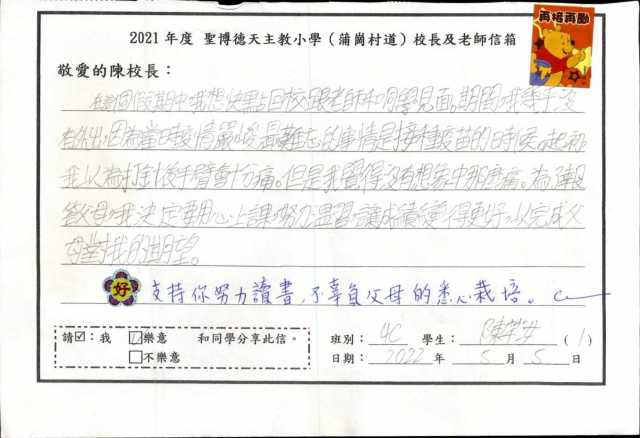 再接再勵
2021 年度 聖博德天主教小學（蒲崗村道）校長及老師信箱
敬愛的陳校長：
在這個假期中，我想快點上回校跟老師和同學見面。期間，我幾乎沒
有外出，因為當時疫情嚴峻。最難忘的事情是接種疫苗的時候。起初，
我以為打針後手臂會十分痛。但是我覺得沒有想象中那麼痛。為了報
答父母，我決定要用心上課，努力溫習，讓成績變得更好，以完成父
母對我的期望。
好 支持你努力讀書，不辜負父母的悉心栽培。
請☑：我 ☑樂意 和同學分享此信。 班別：4C 學生：陳 （1）
□不樂意 日期：2022 年 5 月 5 日